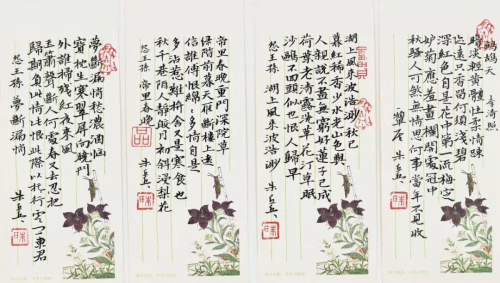 鷓鴣天 李清照
暗淡輕黃體性柔情疎
迹遠只香留何須淺碧
深紅色自是花中第一流梅定
妒菊應羞畫欄開處冠中
秋騷人可煞無情思何事當年不見收
湖上風來波浩渺秋已
暮紅稀香少水光山色與
人親說不盡無窮好蓮子已成
荷葉老清露洗蘋花汀草眠
沙鷗不回頭似也恨人歸早
怨王孫 湖上風來波浩渺 朱
帝里春晚重門深院草
綠階前暮天雁斷樓上遠
信誰傳恨綿綿多情自是
多沾惹難拚捨又是寒食也
秋千巷陌人靜皎月初斜浸梨花
怨王孫 帝里春晚 朱
夢斷漏悄愁濃酒惱
寶枕生寒翠屏向曉門
外誰掃殘紅夜來風
玉簫聲斷人何處春又去忍把
歸期負此情此恨此際擬托行雲問東君
怨王孫 夢斷漏悄 朱